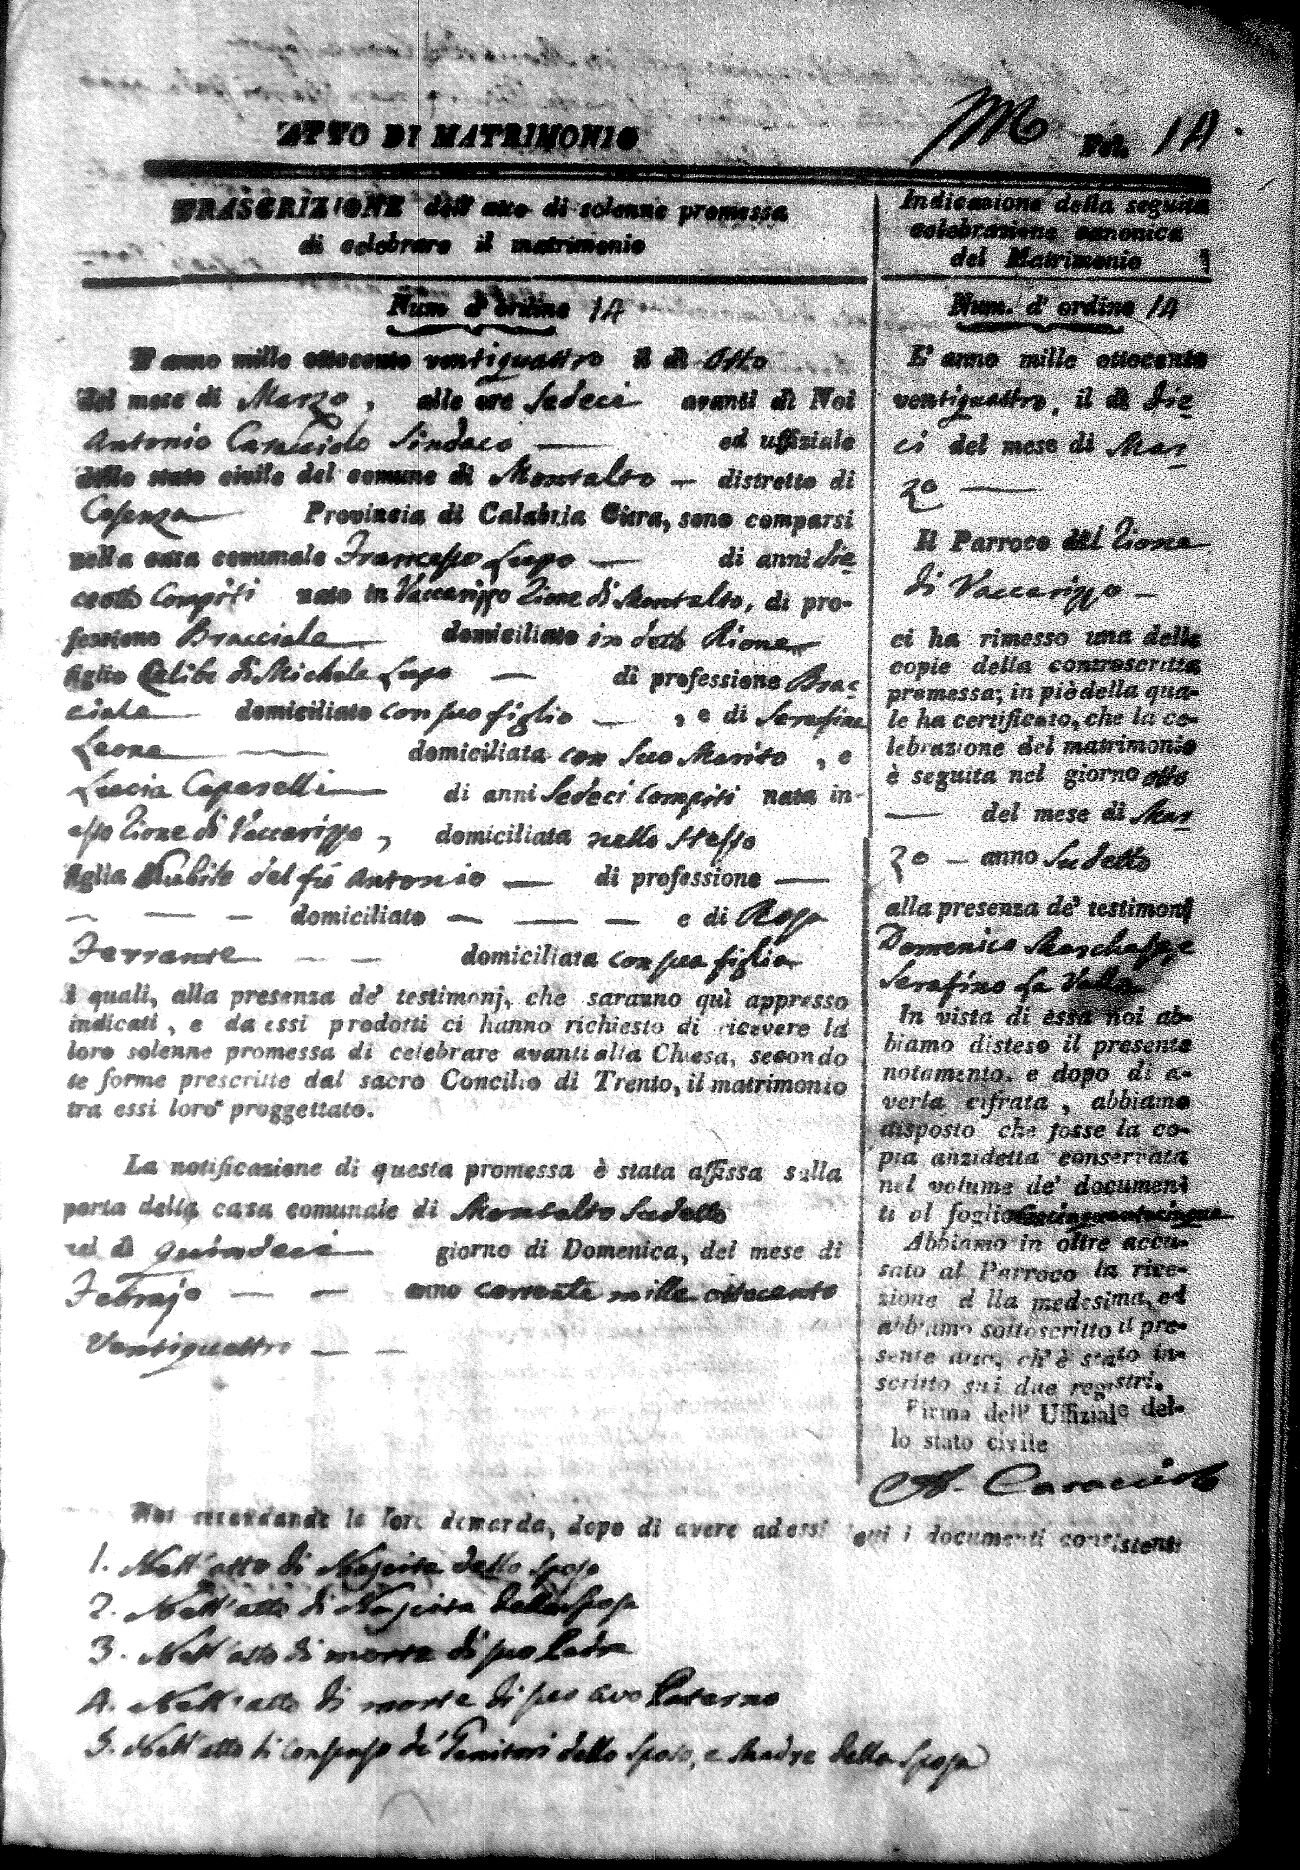 ATTO DI MATRIMONIO
Fol. 14.
TRASCRIZIONE dell' atto di solenne promessa
di celebrare il matrimonio
Num. d' ordine 14
L' anno mille ottocento ventiquattro il di Otto
del mese di Marzo, alle ore Sedeci avanti di Noi
Antonio Caracciolo Sindaco — ed uffiziale
dello stato civile del comune di Montalto — distretto di
Cosenza Provincia di Calabria Citra, sono comparsi
nella casa comunale Francesco Lupo — di anni die=
ciotto Compiti nato in Vaccarizzo Rione di Montalto, di pro-
fessione Bracciale domiciliato in detto Rione
figlio Celibe di Michele Lupo — di professione Brac=
ciale domiciliato con suo figlio — , e di Serafina
Leone — domiciliata con suo Marito , e
Lucia Caparelli di anni Sedeci Compiti nata in
esso Rione di Vaccarizzo , domiciliata nello stesso
figlia Nubile del fù Antonio — di professione —
— — — domiciliato — — — e di Rosa
Ferrante — — — domiciliata con sua figlia
i quali, alla presenza de' testimonj, che saranno quì appresso
indicati, e da essi prodotti ci hanno richiesto di ricevere la
loro solenne promessa di celebrare avanti alla Chiesa, secondo
le forme prescritte dal sacro Concilio di Trento, il matrimonio
tra essi loro proggettato.
La notificazione di questa promessa è stata affissa sulla
porta della casa comunale di Montalto sudetto
nel dì quindeci giorno di Domenica, del mese di
Febrajo — — anno corrente mille ottocento
Ventiquattro — —
Indicazione della seguita
celebrazione canonica
del Matrimonio
Num. d' ordine 14
L' anno mille ottocento
ventiquattro, il di die=
ci del mese di Mar=
zo —
Il Parroco del Rione
di Vaccarizzo —
ci ha rimesso una delle
copie della controscritta
promessa; in piè della qua-
le ha certificato, che la ce-
lebrazione del matrimonio
è seguita nel giorno otto
— del mese di Mar=
zo — anno sudetto
alla presenza de' testimonj
Domenico
Serafino La Valle
In vista di essa noi ab-
biamo disteso il presente
notamento, e dopo di a-
verla cifrata, abbiamo
disposto che fosse la co-
pia anzidetta conservata
nel volume de' documen
ti al foglio
Abbiamo in oltre accu-
sato al Parroco la rice-
zione della medesima, ed
abbiamo sottoscritto il pre-
sente atto, ch' è stato in-
scritto sui due registri.
Firma dell' Uffiziale del-
lo stato civile
A. Caracciolo
Noi secondando la loro demanda, dopo di avere ad essi letti i documenti consistenti
1. Nell' atto di Nascita dello sposo
2. Nell' atto di Nascita della sposa
3. Nell' atto di morte di suo Padre
4. Nell' atto di morte di suo avo Paterno
5. Nell' atto di consenso de' Genitori dello sposo, e Madre della sposa